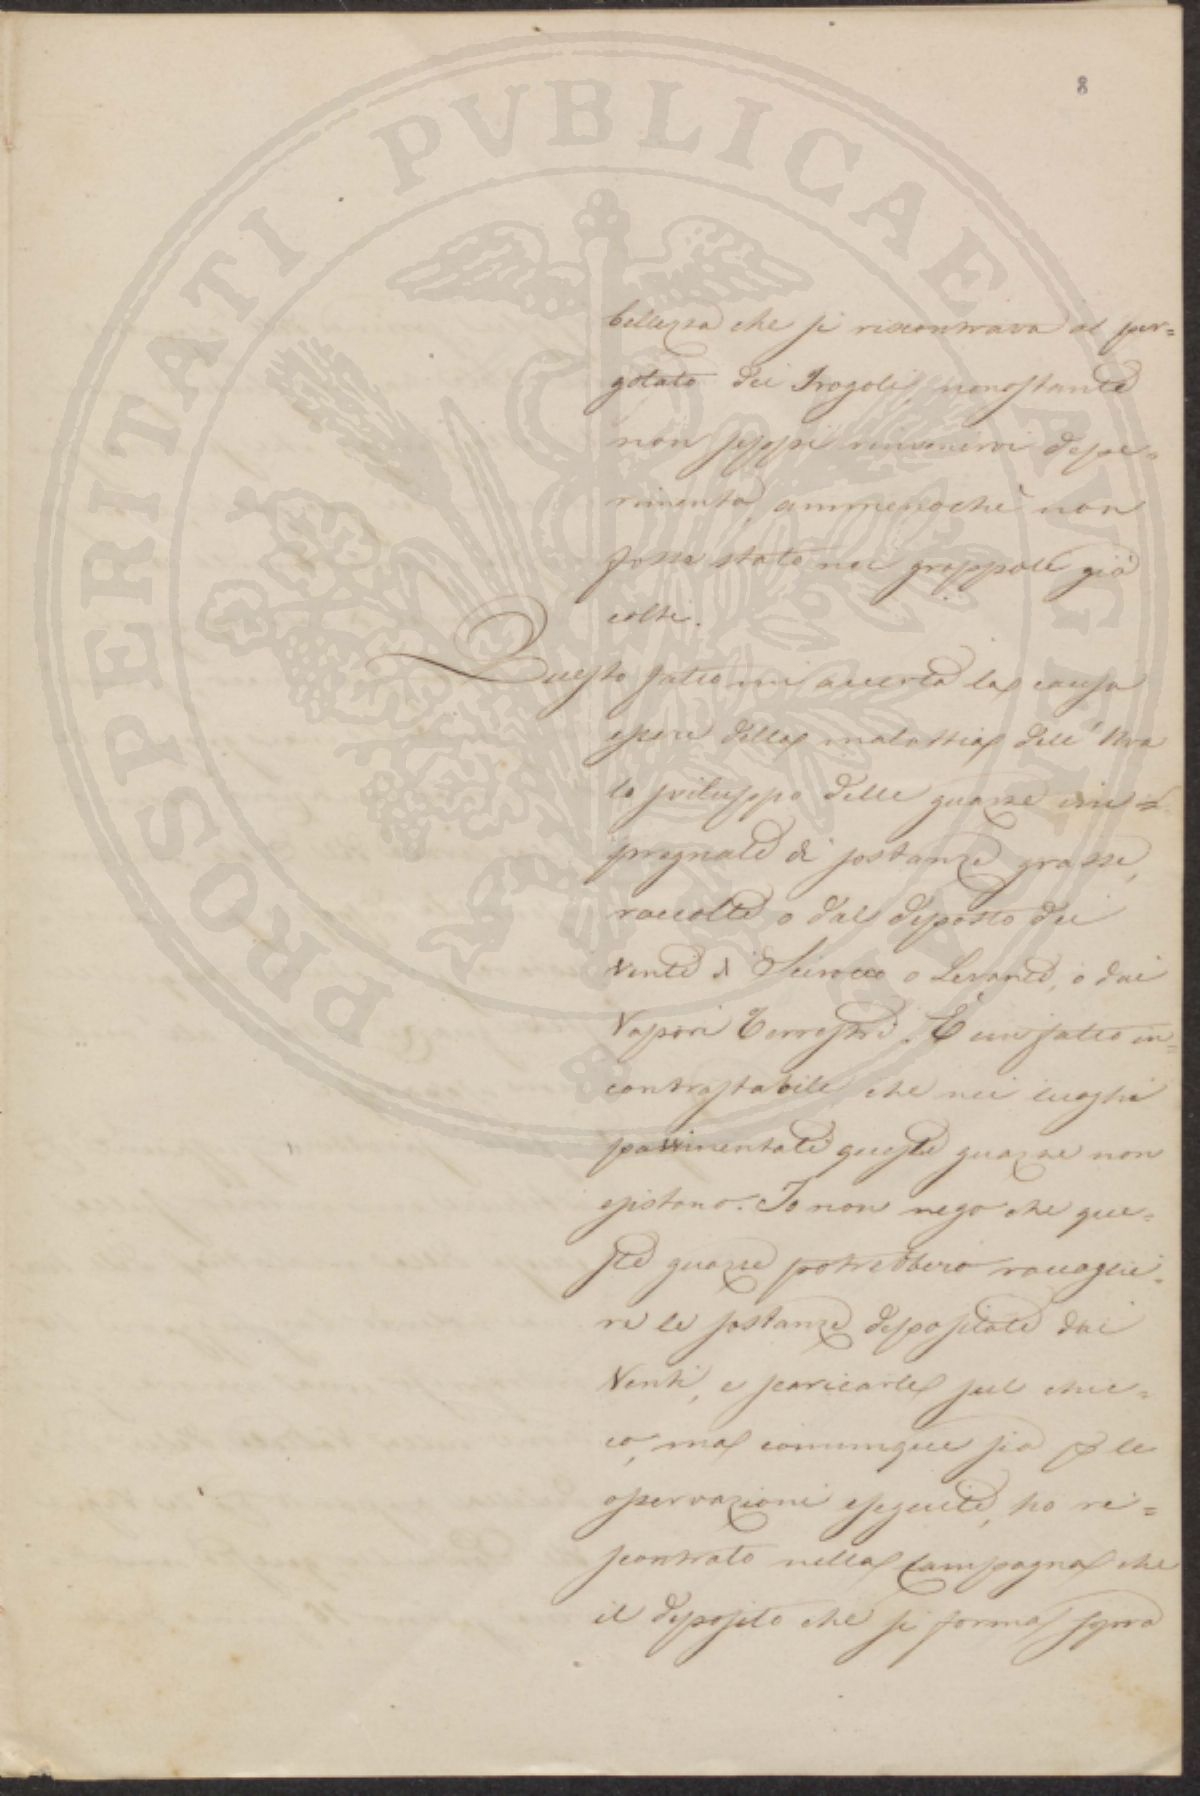 8
PROSPERITATI PVBLICAE AVGENDAE
bellezza che si riscontrava al per=
golato dei Fragoli, nonostante
non seppi rinvenirvi depe=
rimento, ammenochè non
fosse stato nei grappoli già
colti.
Questo fatto mi accerta la causa
essere della malattia dell'Uva
lo sviluppo delle guazze im=
pregnate di sostanze grasse,
raccolte o dal deposto dei
Venti di Scirocco o Levante, o dai
Vapori Terrestri. È un fatto in=
contrastabile che nei luoghi
pavimentati queste guazze non
esistono. Io non nego che que=
ste guazze potrebbero raccoglie=
re le sostanze depositate dai
Venti, e scaricarle sul chic=
co, ma comunque sia p le
osservazioni eseguite, ho ri=
scontrato nella Campagna che
il deposito che si forma sopra